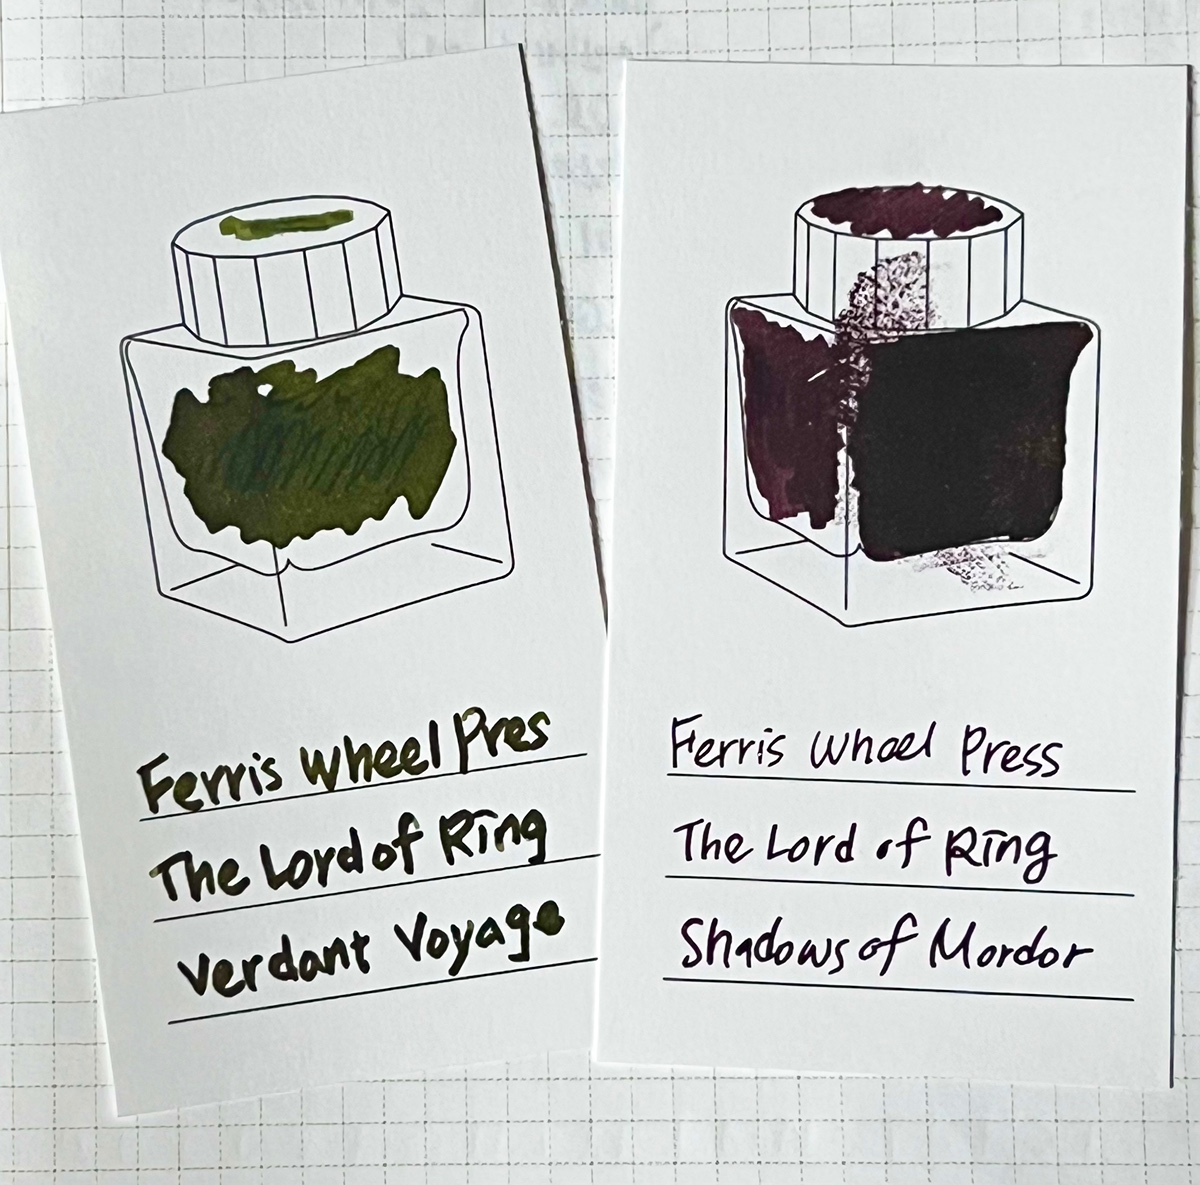 Ferris Wheel Pres
The Lord of Ring
Verdant Voyage
Ferris Wheel Press
The Lord of Ring
Shadows of Mordor